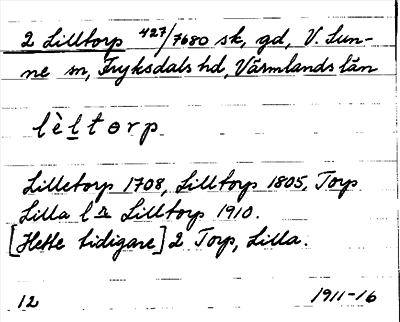 2 Lilltorp 427/7680 sk, gd, V. Sun-
ne sn, Fryksdals hd, Värmlands län
lèltorp
Lilletorp 1708, Lilltorp 1805, Torp
Lilla l. Lilltorp 1910.
[Hette tidigare] 2 Torp, Lilla.
12 1911-16